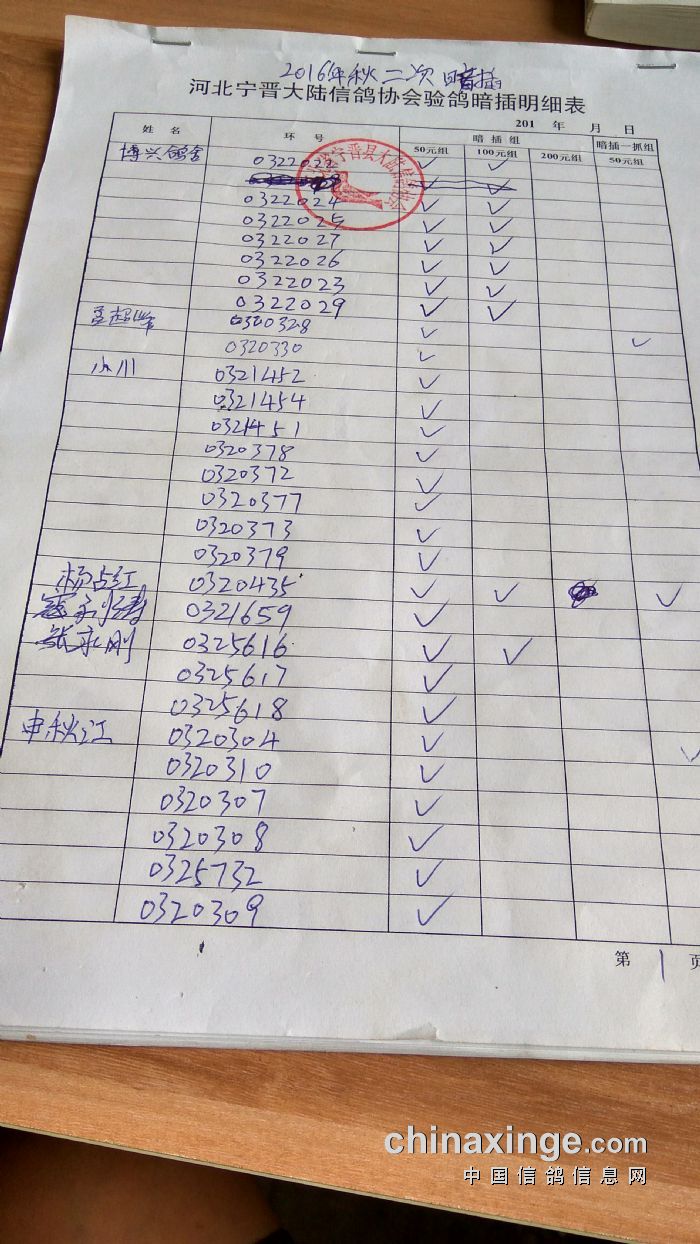 2016年秋二次暗插
河北宁晋大陆信鸽协会验鸽暗插明细表
201 年 月 日
姓 名 环 号 暗 插 组 暗插一抓组
50元组 100元组 200元组 50元组
博兴鸽舍 0322022 ✓ ✓
✓ ✓
0322024 ✓ ✓
0322025 ✓ ✓
0322027 ✓ ✓
0322026 ✓ ✓
0322023 ✓ ✓
0322029 ✓ ✓
孟超峰 0320328 ✓ ✓
0320330 ✓
小川 0321452 ✓
0321454 ✓
0321451 ✓
0320378 ✓
0320372 ✓
0320377 ✓
0320373 ✓
0320379 ✓
杨占红 0320435 ✓ ✓ ✓
0321659 ✓
刚 0325616 ✓ ✓
0325617 ✓
0325618 ✓
申秋江 0320304 ✓ ✓
0320310 ✓
0320307 ✓
0320308 ✓
0325732 ✓
0320309 ✓
第 1 页
chinaxinge.com
中国信鸽信息网